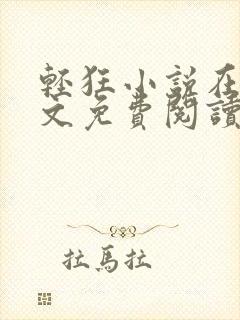 輕狂小說在
文免費閱讀
拉馬拉